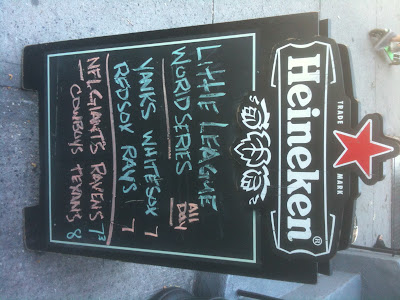 TRADE MARK
Heineken®
LIttLE LEAGUE
WORD SERIES All DAY
YANKS WHITESOX 7
REDSOX RAYS 7
NFL GIANTS RAVENS 7³
COWBOYS TEXANS 8